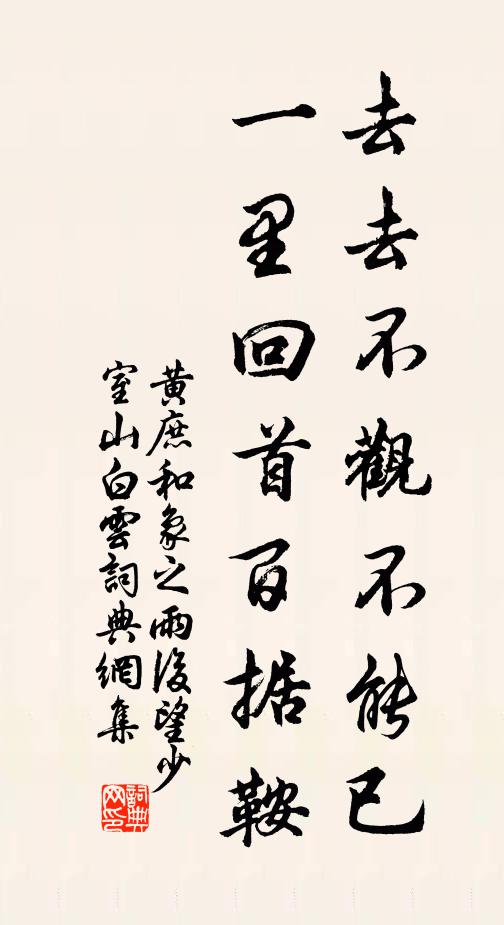 去去不觀不能已
一里回首百据鞍
黃庶和象之雨後望少
室山白雲詞典網集
詞典
网印